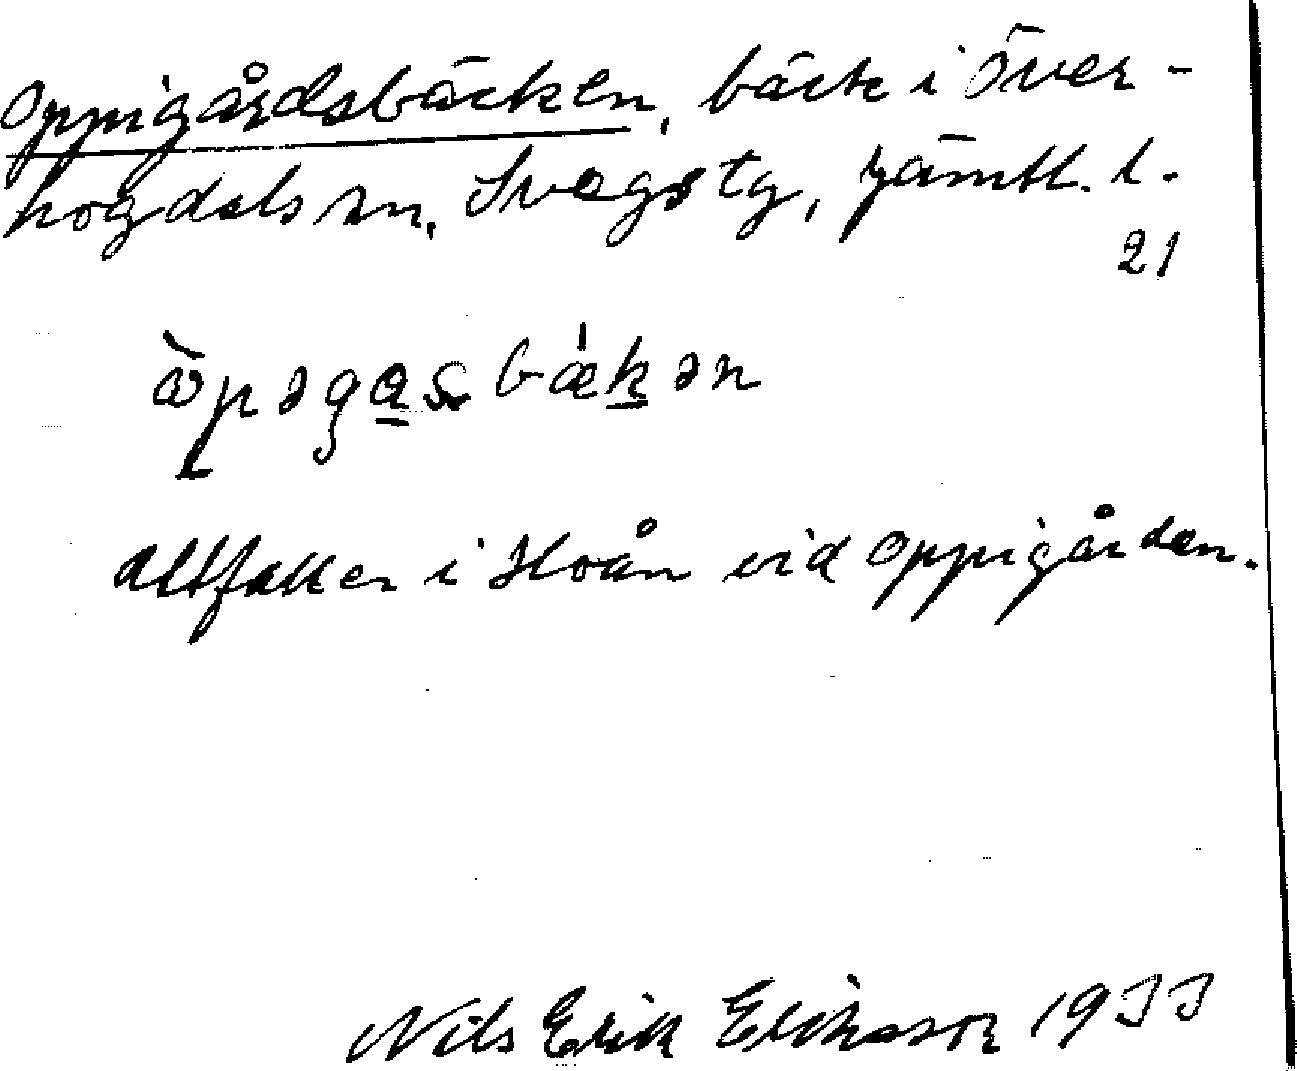 Oppigårdsbäcken, bäck i Över-
hogdals sn, Svegs tg, Jämtl. l.
21
Utfaller i Hoån vid Oppigården.
Nils Erik Eriksson 1933